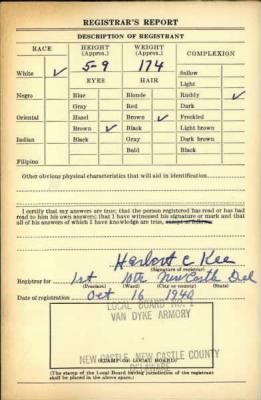 REGISTRAR'S REPORT
DESCRIPTION OF REGISTRANT
RACE HEIGHT (Approx.) WEIGHT (Approx.) COMPLEXION
5-9 174
White ✓ Sallow
EYES HAIR Light
Negro Blue Blonde Ruddy ✓
Gray Red Dark
Oriental Hazel Brown ✓ Freckled
Brown ✓ Black Light brown
Indian Black Gray Dark brown
Bald Black
Filipino
Other obvious physical characteristics that will aid in identification
I certify that my answers are true; that the person registered has read or has had
read to him his own answers; that I have witnessed his signature or mark and that
all of his answers of which I have knowledge are true, except as follows:
Herbert C Kee
(Signature of registrar)
Registrar for 1st 10th New Castle Del
(Precinct) (Ward) (City or county) (State)
Date of registration Oct 16 1940
LOCAL BOARD NO. 2
VAN DYKE ARMORY
NEW CASTLE, NEW CASTLE COUNTY
DELAWARE
(STAMP OF LOCAL BOARD)
(The stamp of the Local Board having jurisdiction of the registrant
shall be placed in the above space.)